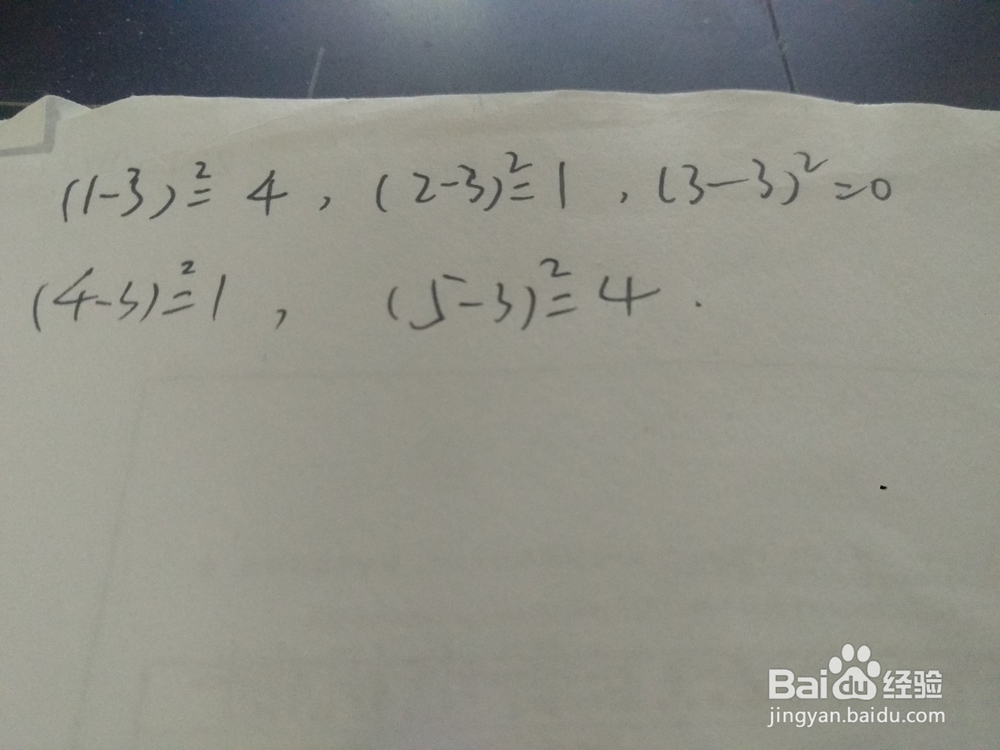 (1-3)²=4，(2-3)²=1，(3-3)²=0
(4-3)²=1，(5-3)²=4.
Baidu经验
jingyan.baidu.com